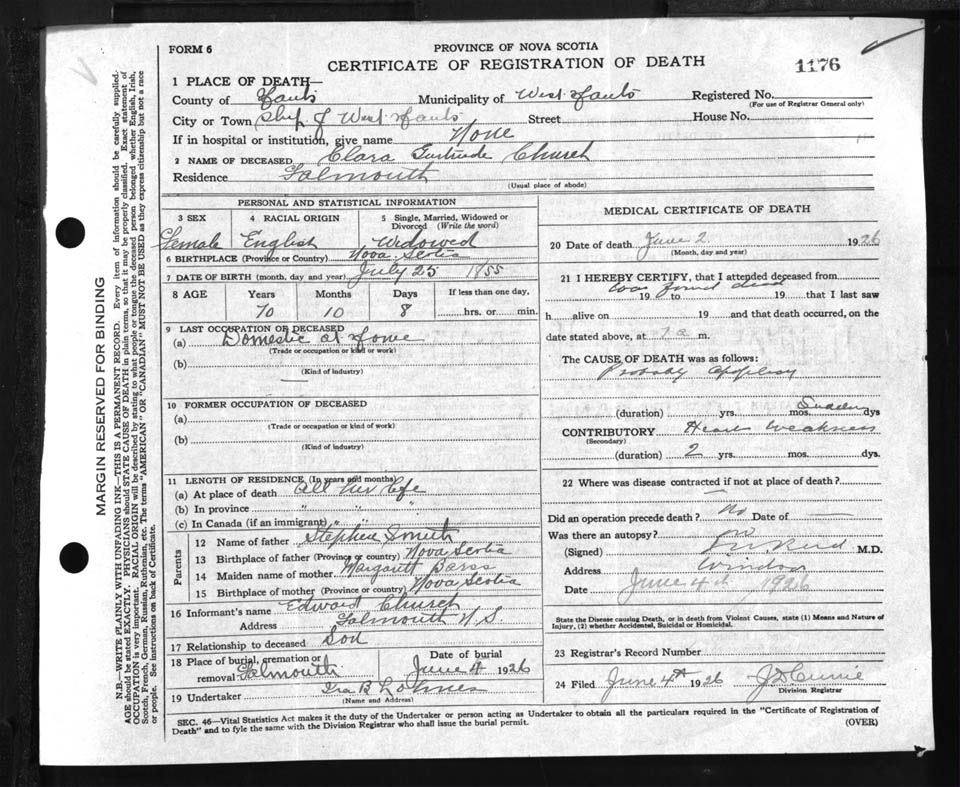 FORM 6
PROVINCE OF NOVA SCOTIA
CERTIFICATE OF REGISTRATION OF DEATH
1176
1 PLACE OF DEATH—
County of Hants Municipality of West Hants Registered No.
(For use of Registrar General only)
City or Town Shp. of West Hants Street House No.
If in hospital or institution, give name None
2 NAME OF DECEASED Clara Gertrude Church
Residence Falmouth
(Usual place of abode)
PERSONAL AND STATISTICAL INFORMATION
3 SEX 4 RACIAL ORIGIN 5 Single, Married, Widowed or Divorced (Write the word)
Female English Widowed
6 BIRTHPLACE (Province or Country) Nova Scotia
7 DATE OF BIRTH (month, day and year) July 25 1855
8 AGE Years Months Days If less than one day,
70 10 8 hrs. or min.
9 LAST OCCUPATION OF DECEASED
(a) Domestic at Home
(Trade or occupation or kind or work)
(b)
(Kind of industry)
10 FORMER OCCUPATION OF DECEASED
(a)
(Trade or occupation or kind of work)
(b)
(Kind of industry)
11 LENGTH OF RESIDENCE (In years and months)
(a) At place of death All her life
(b) In province " " "
(c) In Canada (if an immigrant) " " "
Parents
12 Name of father Stephen Smith
13 Birthplace of father (Province or country) Nova Scotia
14 Maiden name of mother Margarett Barss
15 Birthplace of mother (Province or country) Nova Scotia
16 Informant's name Edward Church
Address Falmouth N.S.
17 Relationship to deceased Son
18 Place of burial, cremation or removal Falmouth Date of burial June 4 1926
19 Undertaker Ira B
(Name and Address)
MEDICAL CERTIFICATE OF DEATH
20 Date of death June 2 1926
(Month, day and year)
21 I HEREBY CERTIFY, that I attended deceased from
Was found dead
19 to 19 that I last saw
h alive on 19 and that death occurred, on the
date stated above, at 7 a m.
The CAUSE OF DEATH was as follows:
Probably Apoplexy
(duration) yrs. mos. Sudden dys
CONTRIBUTORY Heart Weakness
(Secondary)
(duration) 2 yrs. mos. dys.
22 Where was disease contracted if not at place of death?
Did an operation precede death? No Date of
Was there an autopsy? no
(Signed) Reid M.D.
Address Windsor
Date June 4th 1926
State the Disease causing Death, or in death from Violent Causes, state (1) Means and Nature of Injury, (2) whether Accidental, Suicidal or Homicidal.
23 Registrar's Record Number
24 Filed June 4th 1926 J D Currie
Division Registrar
SEC. 46—Vital Statistics Act makes it the duty of the Undertaker or person acting as Undertaker to obtain all the particulars required in the "Certificate of Registration of
Death" and to fyle the same with the Division Registrar who shall issue the burial permit.
(OVER)
MARGIN RESERVED FOR BINDING
N.B.—WRITE PLAINLY WITH UNFADING INK—THIS IS A PERMANENT RECORD. Every item of information should be carefully supplied.
AGE should be stated EXACTLY. PHYSICIANS should STATE CAUSE OF DEATH in plain terms, so that it may be properly classified. Exact statement of
OCCUPATION is very important. RACIAL ORIGIN will be described by stating to what people or tongue the deceased person belonged whether English, Irish,
Scotch, French, German, Russian, Ruthenian, etc. The terms "AMERICAN" OR "CANADIAN" MUST NOT BE USED as they express citizenship but not a race
or people. See instructions on back of Certificate.